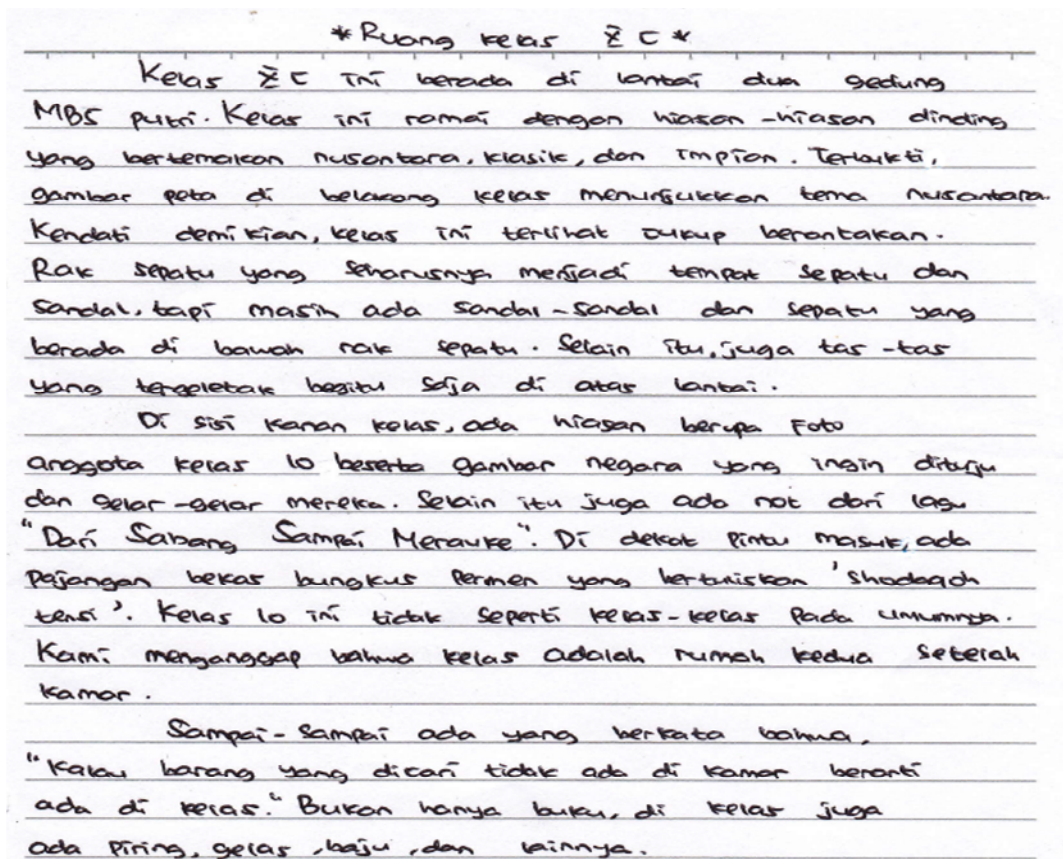 *Ruang kelas Z C*
Kelas Z C ini berada di lantai dua gedung
MBS putri. Kelas ini ramai dengan hiasan-hiasan dinding
yang bertemakan nusantara, klasik, dan impian. Terbukti,
gambar peta di belakang kelas menunjukkan tema nusantara.
Kendati demikian, kelas ini terlihat cukup berantakan.
Rak sepatu yang seharusnya menjadi tempat sepatu dan
sandal, tapi masih ada sandal-sandal dan sepatu yang
berada di bawah rak sepatu. Selain itu, juga tas-tas
yang tergeletak begitu saja di atas lantai.
Di sisi kanan kelas, ada hiasan berupa Foto
anggota kelas 10 beserta gambar negara yang ingin dituju
dan gelar-gelar mereka. Selain itu juga ada not dari lagu
"Dari Sabang Sampai Merauke". Di dekat pintu masuk, ada
pajangan bekas bungkus permen yang bertuliskan 'Shodaqoh
tensi'. Kelas 10 ini tidak seperti kelas-kelas pada umumnya.
Kami menganggap bahwa kelas adalah rumah kedua setelah
kamar.
Sampai-sampai ada yang berkata bahwa,
"Kalau barang yang dicari tidak ada di kamar berarti
ada di kelas." Bukan hanya buku, di kelas juga
ada piring, gelas, baju, dan lainnya.